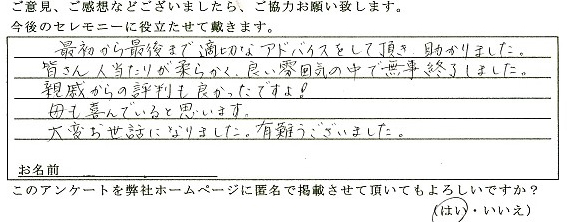 ご意見、ご感想などございましたら、ご協力お願い致します。
今後のセレモニーに役立たせて戴きます。
最初から最後まで適切なアドバイスをして頂き、助かりました。
皆さん人当たりが柔らかく、良い雰囲気の中で無事終了しました。
親戚からの評判も良かったですよ!
母も喜んでいると思います。
大変お世話になりました。有難うございました。
お名前
このアンケートを弊社ホームページに匿名で掲載させて頂いてもよろしいですか?
(はい・いいえ)